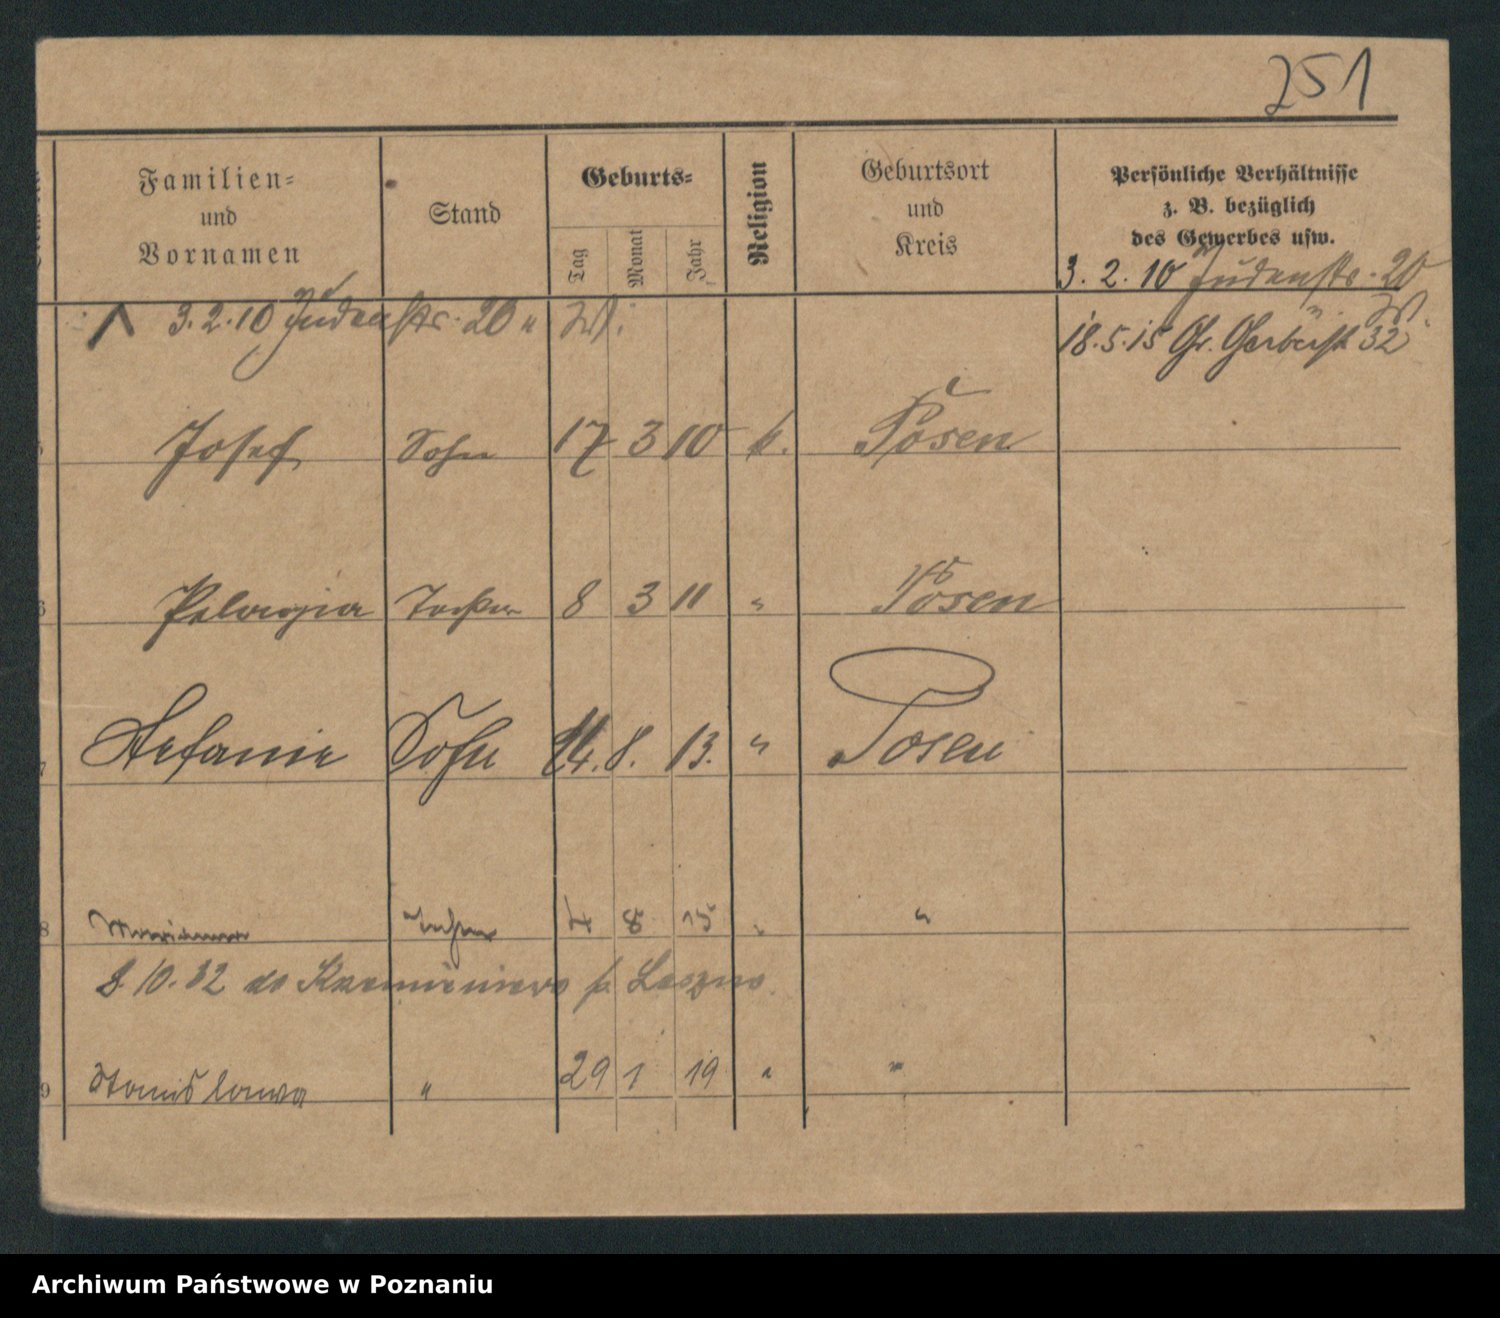 251
Familien= und Vornamen
Stand
Geburts=
Tag
Monat
Jahr
Religion
Geburtsort und Kreis
Persönliche Verhältnisse
z. B. bezüglich
des Gewerbes usw.
3. 2. 10 Judenstr. 20
W.
3. 2. 10 Judenstr. 20 " W.
18. 5. 15 Gr. Gerberstr 32
Josef Sohn 17 3 10 k. Posen
Pelagia Tochter 8 3 11 " Posen
7 Stefanie Sohn 14. 8. 13. " Posen
8 Marianna Tochter 4 8 15 " "
8. 10. 32 do Krzemieniewo p. Leszno
9 Stanisława " 29 1 19 " "
Archiwum Państwowe w Poznaniu